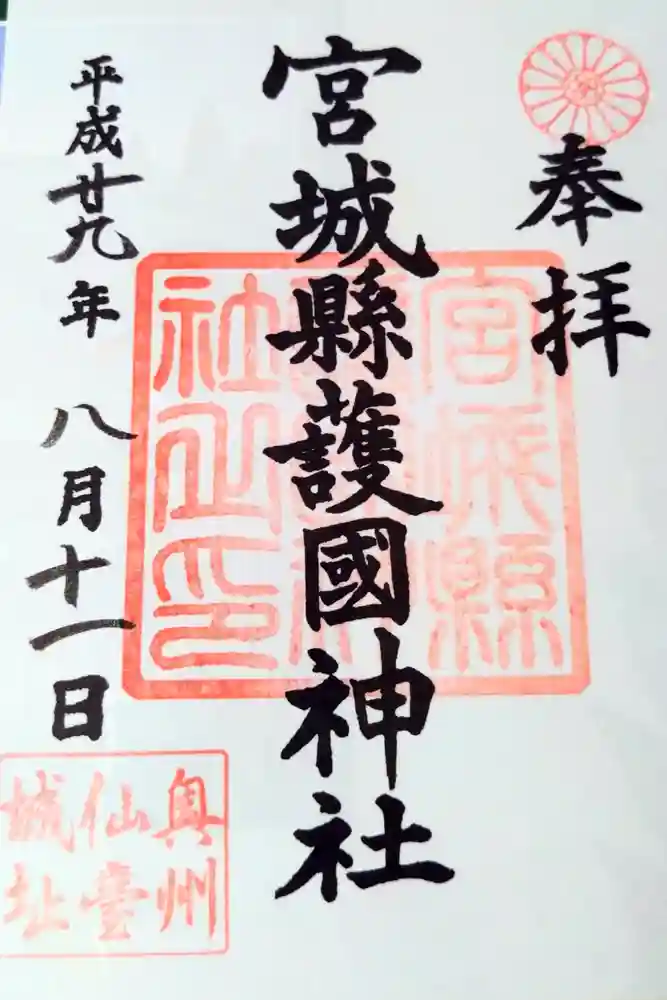 奉拝
宮城縣護國神社
平成廿九年 八月十一日
宮城縣
社之印
奥州
仙臺
城址